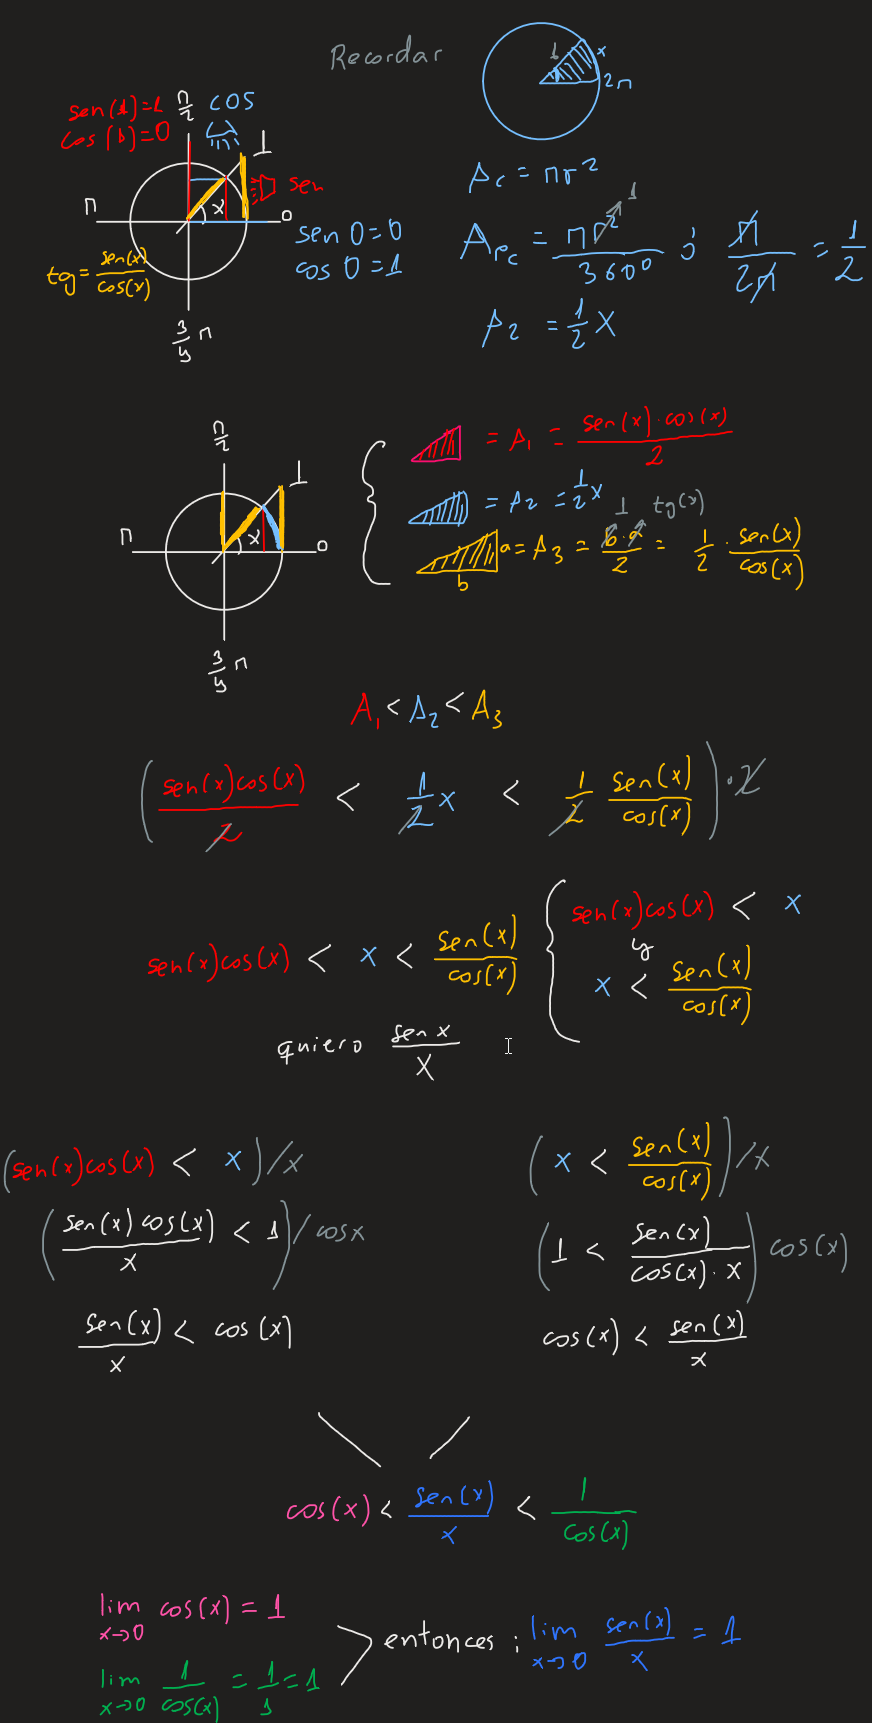 Recordar
1 x
2π
sen(1)=1 π/2 cos
cos(b)=0
1
sen
π x 0
sen 0=0
cos 0=1
tg = sen(x)/cos(x)
3/4 π
Ac = πr²
1
Apc = πr²/360° ó π/2π = 1/2
A2 = 1/2 x
π/2
1
π x 0
3/4 π
= A1 = sen(x)·cos(x)/2
= A2 = 1/2 x
1 tg(x)
a = A3 = b·a/2 = 1/2 · sen(x)/cos(x)
b
A1 < A2 < A3
(sen(x)cos(x)/2 < 1/2 x < 1/2 sen(x)/cos(x))·2
sen(x)cos(x) < x < sen(x)/cos(x)
sen(x)cos(x) < x
y
x < sen(x)/cos(x)
quiero sen x/x
(sen(x)cos(x) < x)/x
(sen(x)cos(x)/x < 1)/cosx
sen(x)/x < cos(x)
(x < sen(x)/cos(x))/x
(1 < sen(x)/cos(x)·x) cos(x)
cos(x) < sen(x)/x
cos(x) < sen(x)/x < 1/cos(x)
lim x→0 cos(x) = 1
lim x→0 1/cos(x) = 1/1 = 1
entonces ; lim x→0 sen(x)/x = 1